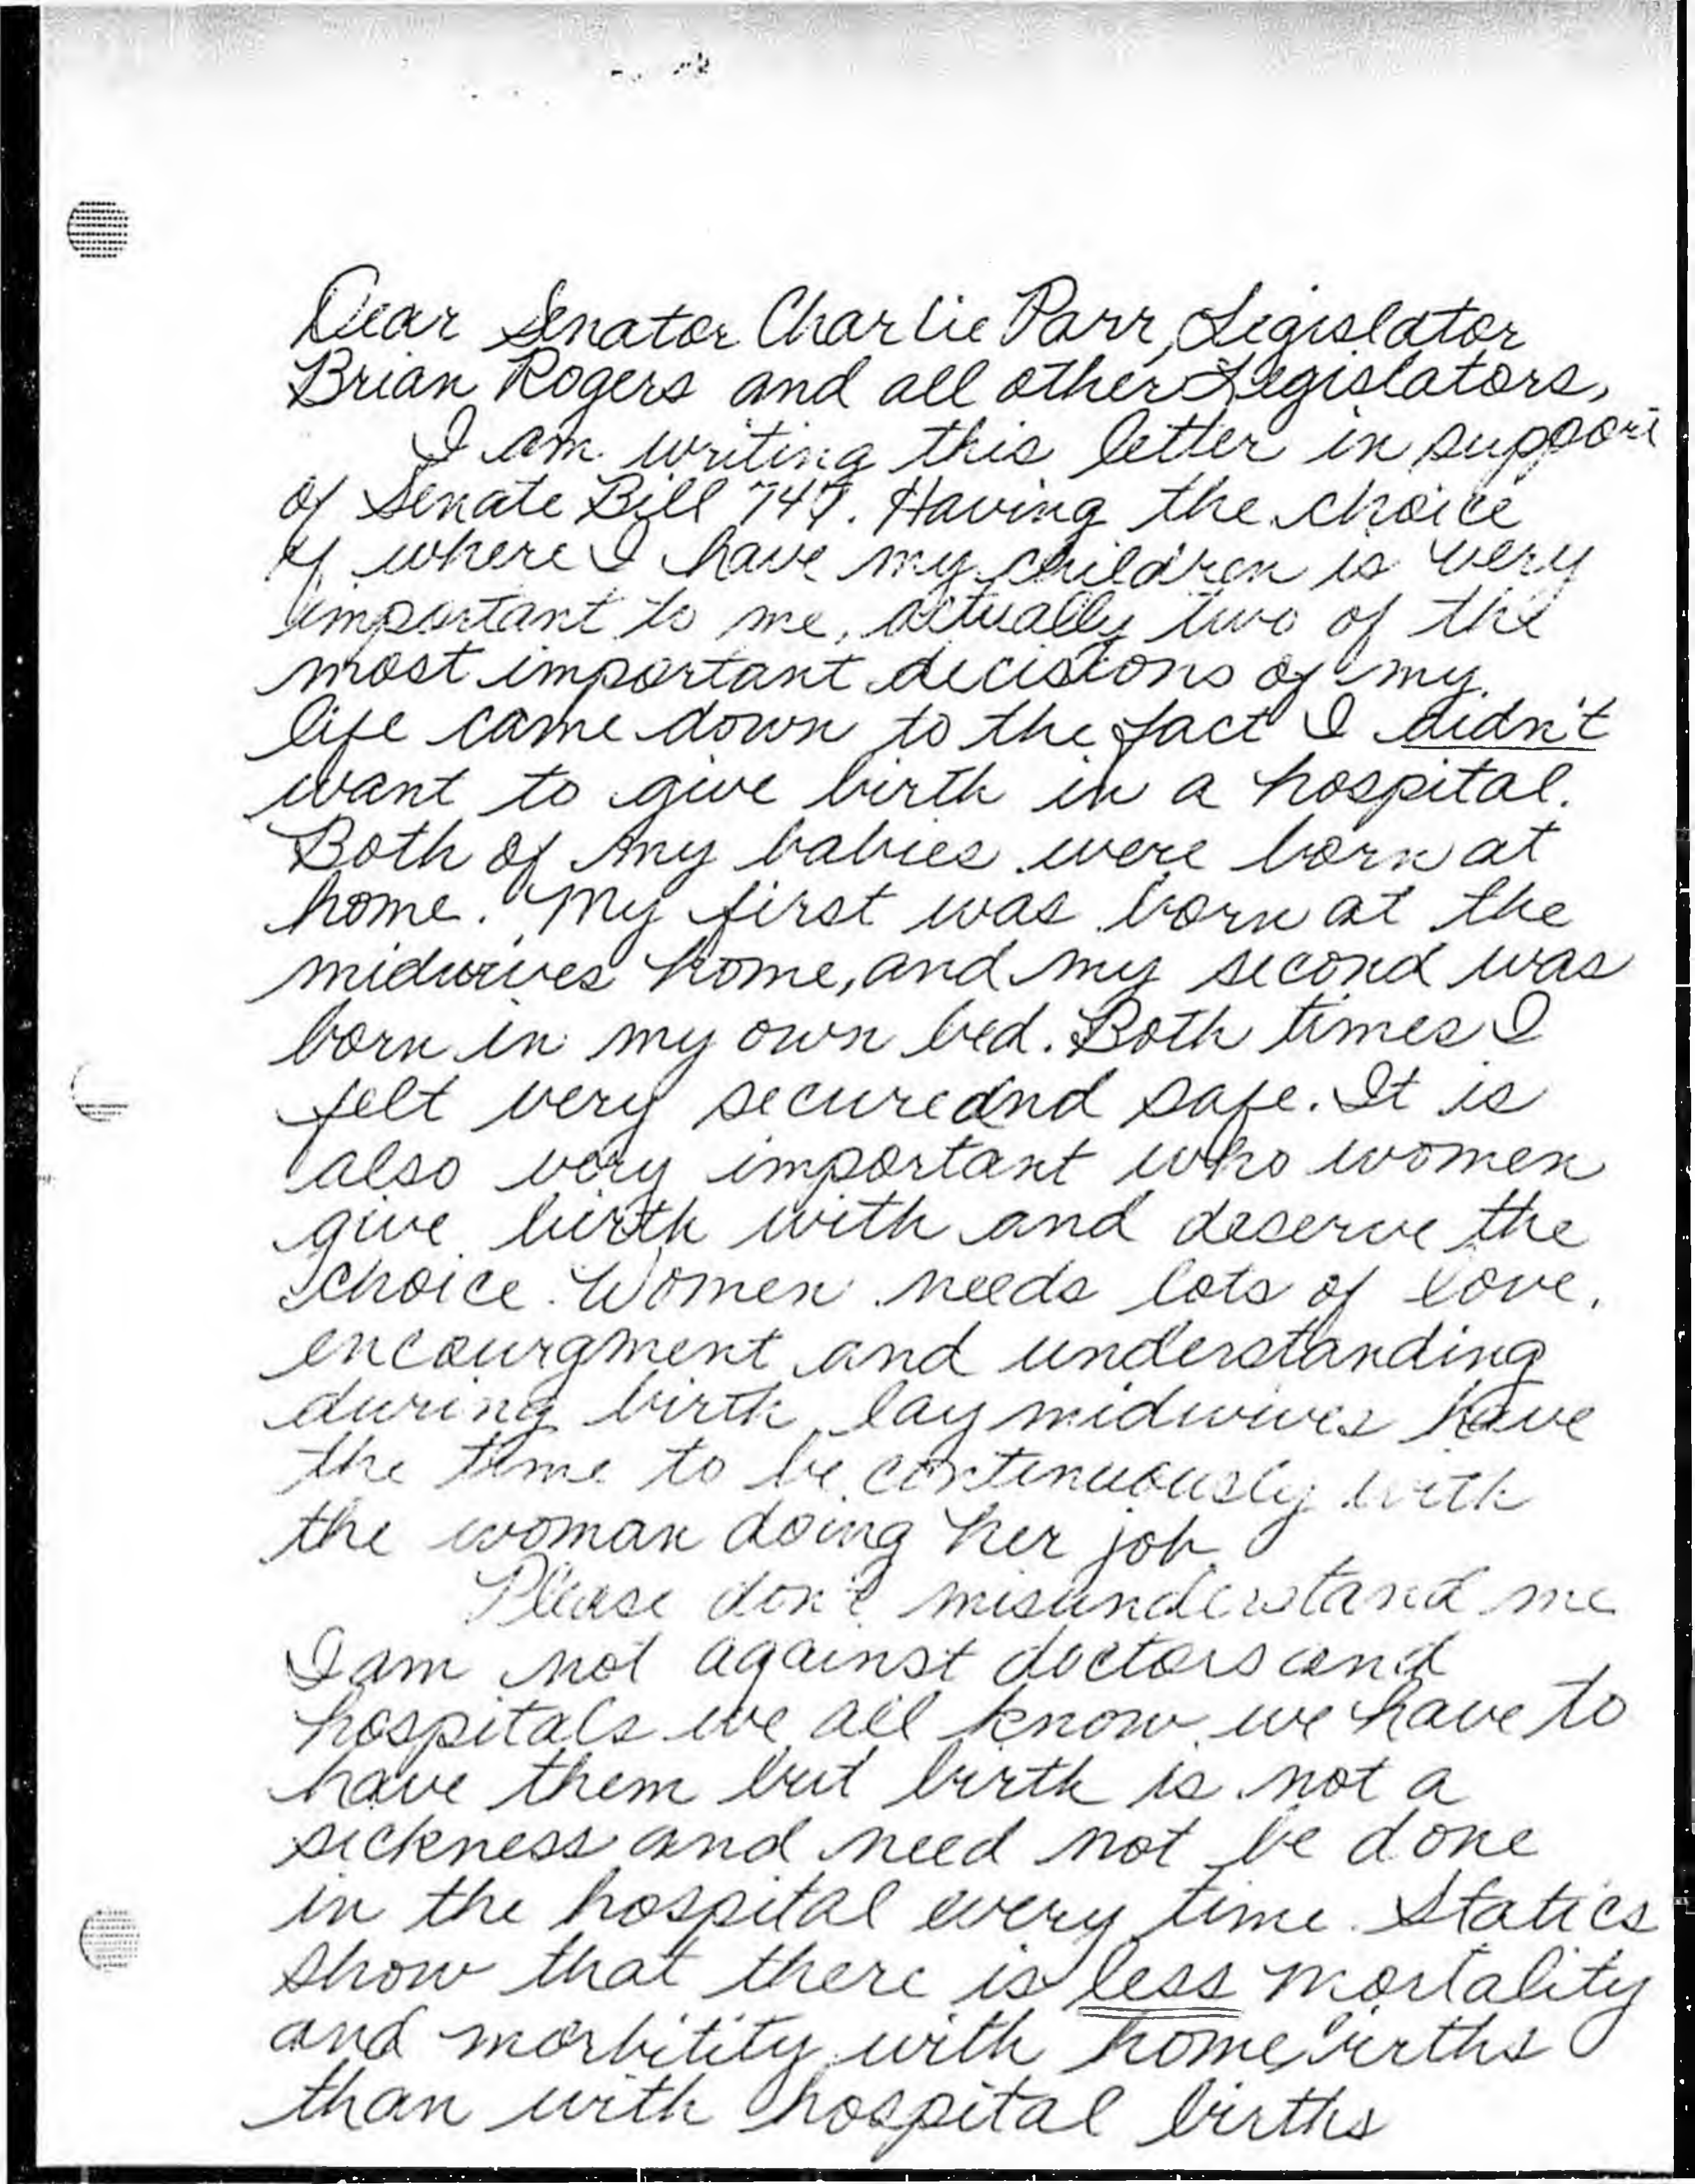 Dear Senator Charlie Parr, Legislator
Brian Rogers and all other Legislators,
I am writing this letter in support
of Senate Bill 747. Having the choice
of where I have my children is very
important to me, actually two of the
most important decisions of my
life came down to the fact I didn't
want to give birth in a hospital.
Both of my babies were born at
home. My first was born at the
midwives home, and my second was
born in my own bed. Both times I
felt very secure and safe. It is
also very important who women
give birth with and deserve the
choice. Women needs lots of love,
encourgment and understanding
during birth, lay midwives have
the time to be continuously with
the woman doing her job.
Please don't misunderstand me
I am not against doctors and
hospitals we all know we have to
have them but birth is not a
sickness and need not be done
in the hospital every time. Statics
show that there is less mortality
and morbitity with home births
than with hospital births